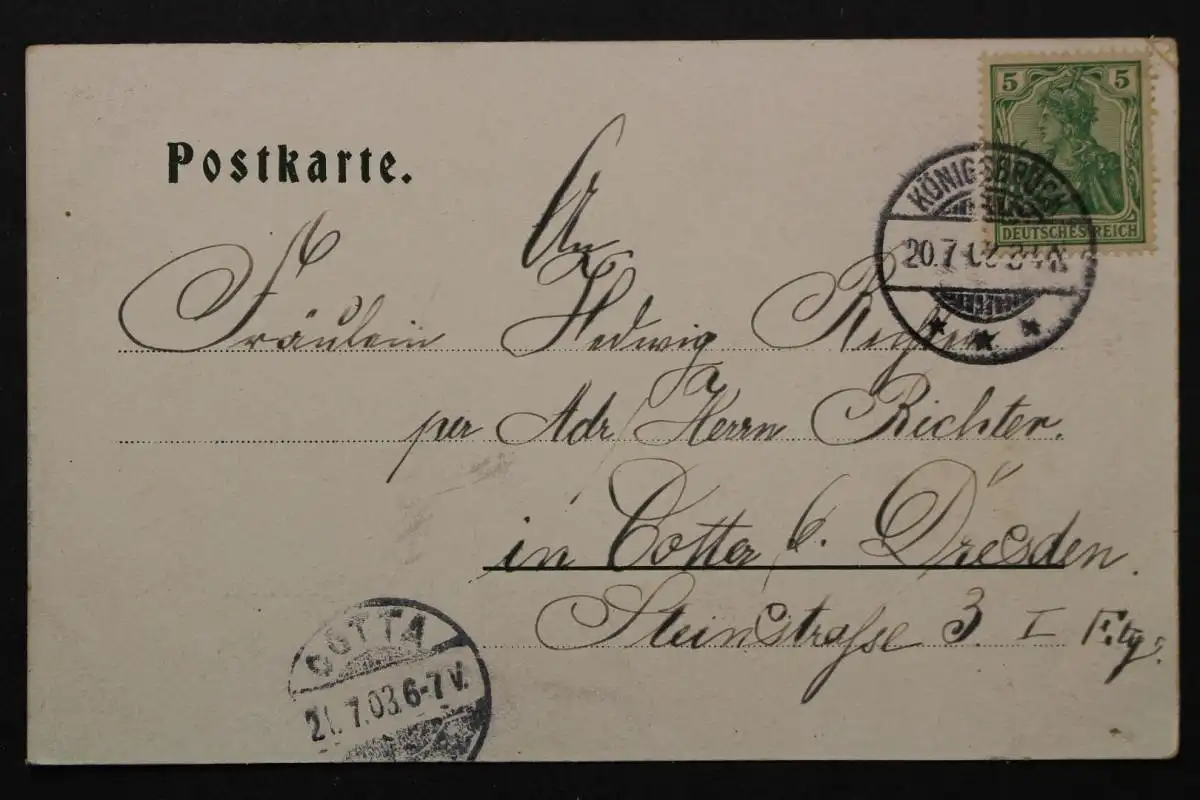 Postkarte.
5 5
DEUTSCHES REICH
KÖNIGSBRÜCK
20.7
An
Fräulein Hedwig Richter
a
per Adr. Herrn Richter.
in Cotta b. Dresden.
Steinstrasse 3. I Etg.
COTTA
21.7.03.6-7V.